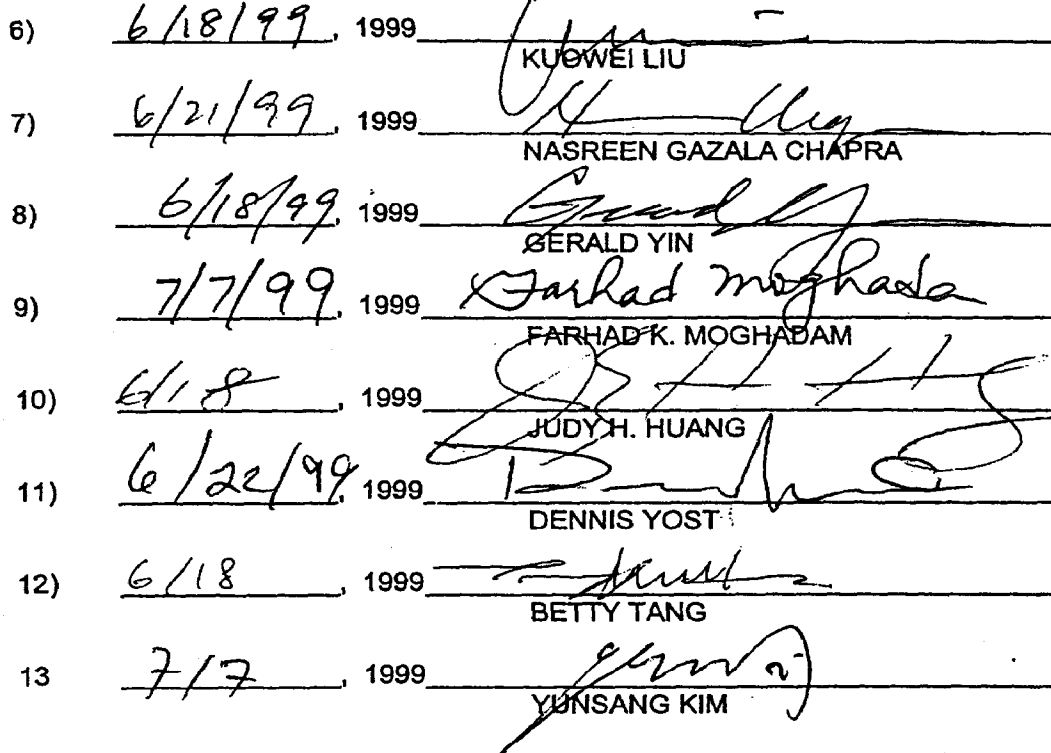 6) 6/18/99, 1999
KUOWEI LIU
7) 6/21/99, 1999
NASREEN GAZALA CHAPRA
8) 6/18/99, 1999
GERALD YIN
9) 7/7/99, 1999 Farhad Moghada
FARHAD K. MOGHADAM
10) 6/18, 1999
JUDY H. HUANG
11) 6/22/99, 1999
DENNIS YOST
12) 6/18, 1999
BETTY TANG
13 7/7, 1999
YUNSANG KIM